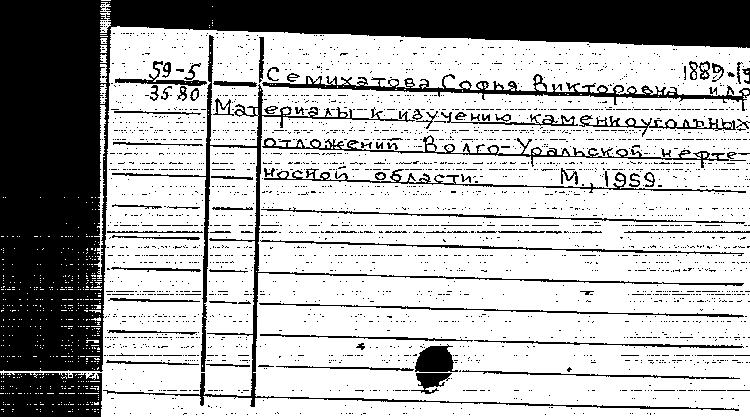 1889-19
59-5 Семихатова, Софья Викторовна, и др
3580
Материалы к изучению каменноугольных
отложений Волго-Уральской нефте-
носной области. М., 1959.